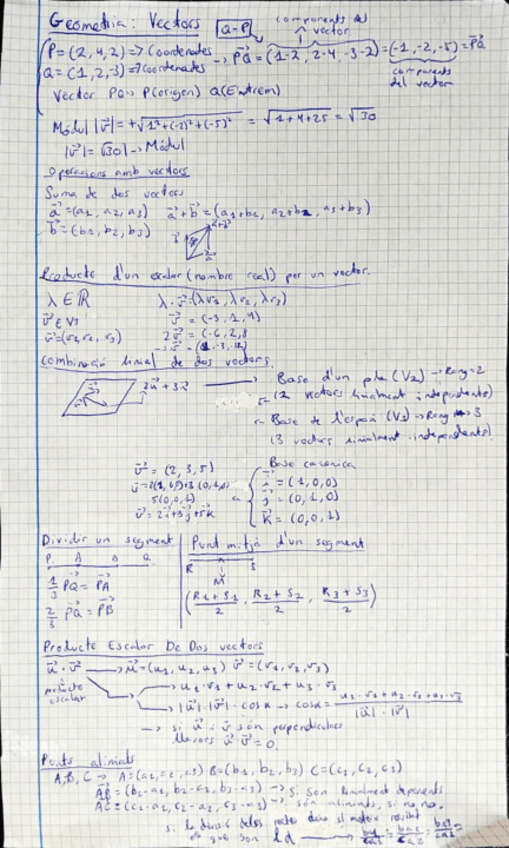 Geometria: Vectors
Q-P
components del vector
P=(2,4,2) => Coordenades
Q=(1,2,-3) => Coordenades
→ PQ = (1-2, 2-4, -3-2) = (-1,-2,-5) = PQ
components del vector
Vector PQ → P(origen) Q(Extrem)
Mòdul |v| = +√1²+(-2)²+(-5)² = √1+4+25 = √30
|v| = √30 → Mòdul
Operacions amb vectors
Suma de dos vectors
a = (a1, a2, a3) a + b = (a1+b2, a2+b2, a3+b3)
b = (b1, b2, b3)
Producte d'un escalar (nombre real) per un vector.
λ ∈ ℝ λ · v = (λv1, λv2, λv3)
v ∈ V3 v = (-3, 1, 4)
v = (v1, v2, v3) 2v = (-6, 2, 8)
Combinació linial de dos vectors.
Base d'un pla (V2) → Rang=2
(2 vectors linialment independents)
Base de l'espai (V3) → Rang 3
(3 vectors linialment independents)
v = (2, 3, 5)
5(0,0,1)
v = 2i+3j+5k
Base canonica
i = (1,0,0)
j = (0,1,0)
k = (0,0,1)
Dividir un segment
P A B Q
1/3 PQ = PA
2/3 PQ = PB
Punt mitjà d'un segment
R S
M
(R1+S1/2, R2+S2/2, R3+S3/2)
Producte Escalar De Dos vectors
u · v → u = (u1, u2, u3) v = (v1, v2, v3)
producte escalar
→ u1·v1 + u2·v2 + u3·v3
→ |u|·|v|·cosα → cosα = u1·v1+u2·v2+u3·v3 / |u|·|v|
→ si u i v són perpendiculars
llavors u·v = 0.
Punts aliniats
A, B, C → A=(a1,a2,a3) B=(b1,b2,b3) C=(c1,c2,c3)
AB = (b1-a1, b2-a2, b3-a3) → si son linialment dependents
AC = (c1-a1, c2-a2, c3-a3) → són aliniats, si no no.